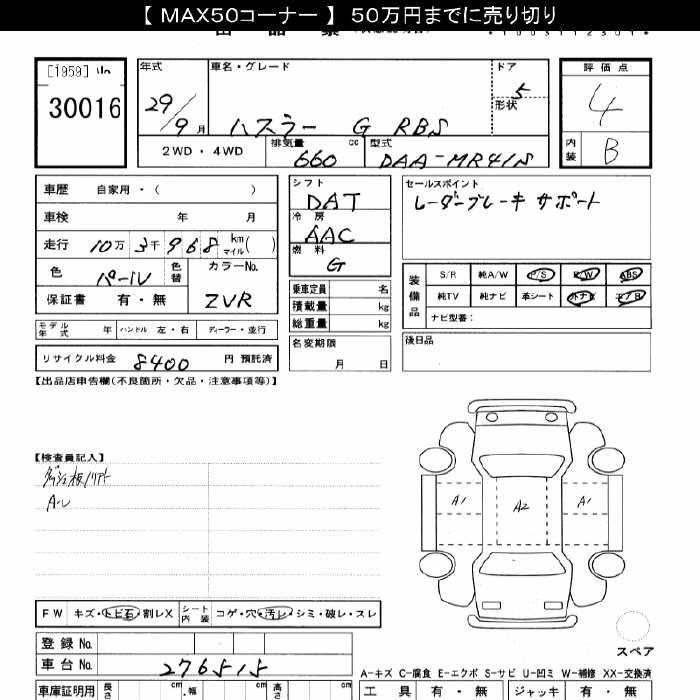 【 MAX50コーナー 】 50万円までに売り切り
[1959]
30016
年式
29/9 月
車名・グレード
ハスラー G RBS
ドア
5
形状
評価点
4
内装
B
2WD・4WD
排気量
660 cc
型式
DAA-MR41S
車歴 自家用・( )
車検 年 月
走行 10万 3千 968 km マイル ( )
色 パール
色替
カラーNo.
ZVR
保証書 有・無
モデル年式 年
ハンドル 左・右
ディーラー・並行
リサイクル料金 8400 円 預託済
シフト
DAT
冷房
AAC
燃料
G
乗車定員 名
積載量 kg
総重量 kg
名変期限
月 日
セールスポイント
レーダーブレーキ サポート
装備品
S/R 純A/W P/S P/W ABS
純TV 純ナビ 革シート 外ナビ エアB
ナビ型番:
後日品
【出品店申告欄(不良箇所・欠品・注意事項等)】
【検査員記入】
A1
A2
A1
スペア
FW キズ・トビ石・割レX
シート内装 コゲ・穴・汚レ・シミ・破レ・スレ
登録 No.
車台 No. 276515
A-キズ C-腐食 E-エクボ S-サビ U-凹ミ W-補修 XX-交換済
車庫証明用 長さ cm ・幅 cm 高さ cm
工具 有・無 ジャッキ 有・無